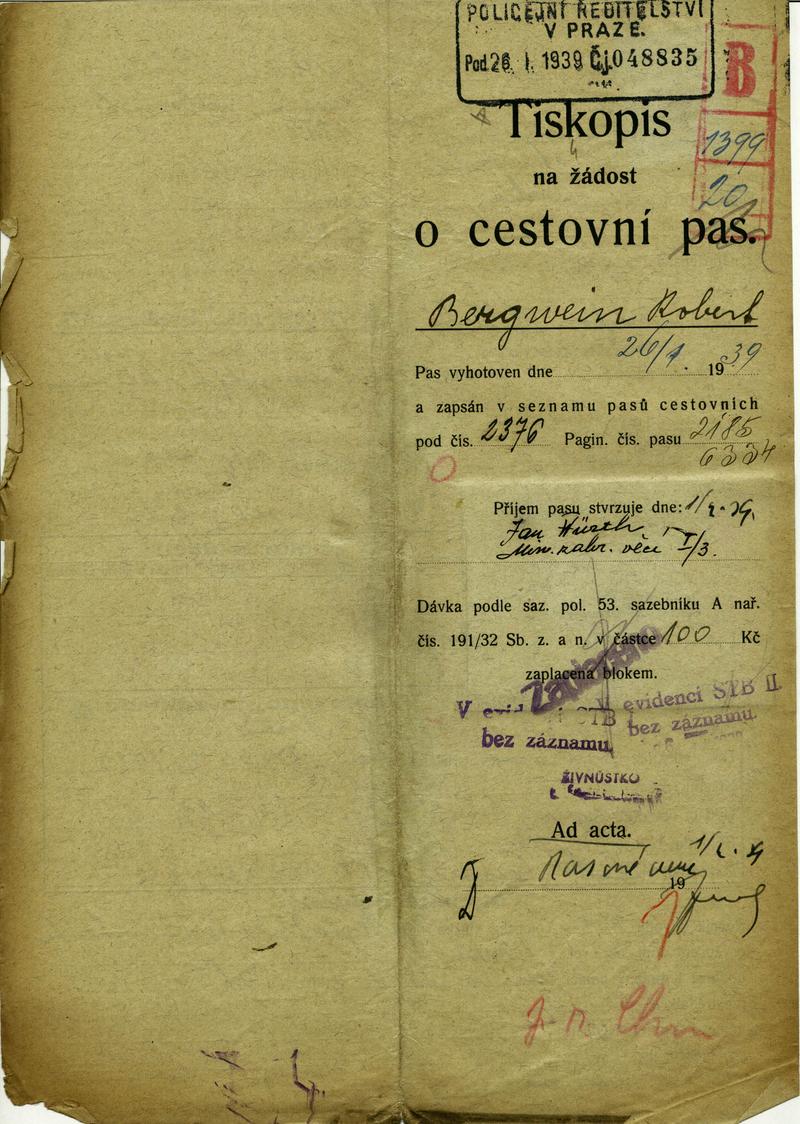 POLICEJNÍ ŘEDITELSTVÍ
V PRAZE.
Pod. 26. I. 1939 Čj. 048835
B
1399
20
Tiskopis
na žádost
o cestovní pas.
Bergwein Robert
Pas vyhotoven dne 26/1. 1939
a zapsán v seznamu pasů cestovních
pod čís. 2376 Pagin. čís. pasu 2185
6334
Příjem pasu stvrzuje dne: 1/2.39.
Jan
Min. zahr. věcí I/3.
Dávka podle saz. pol. 53. sazebníku A nař.
čís. 191/32 Sb. z. a n. v částce 100 Kč
zaplacena blokem.
Zaplaceno
V evidenci STB II
bez záznamu.
V STB I
bez záznamu
ŽIVNOSTKO
Ad acta.
19